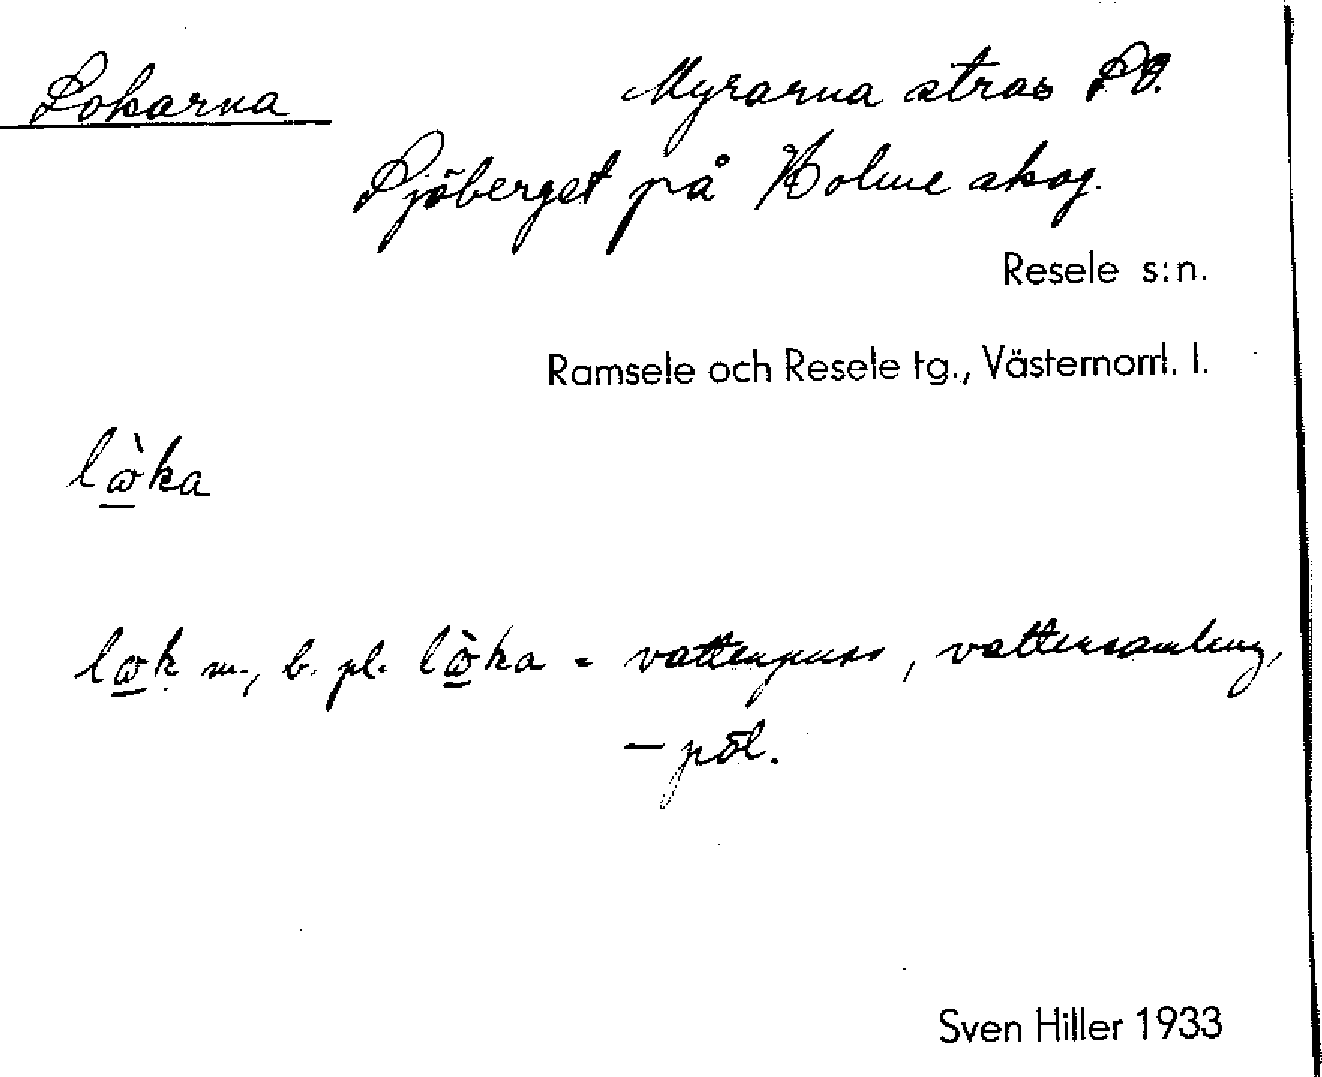 Lokarna
Myrarna strax SO.
Sjöberget på Holme skog.
Resele s:n.
Ramsele och Resele tg., Västernorrl. l.
lὼ̲ka
lω̲k m., b. pl. lὼ̲ka = vattenpuss, vattensamling,
— pöl.
Sven Hiller 1933